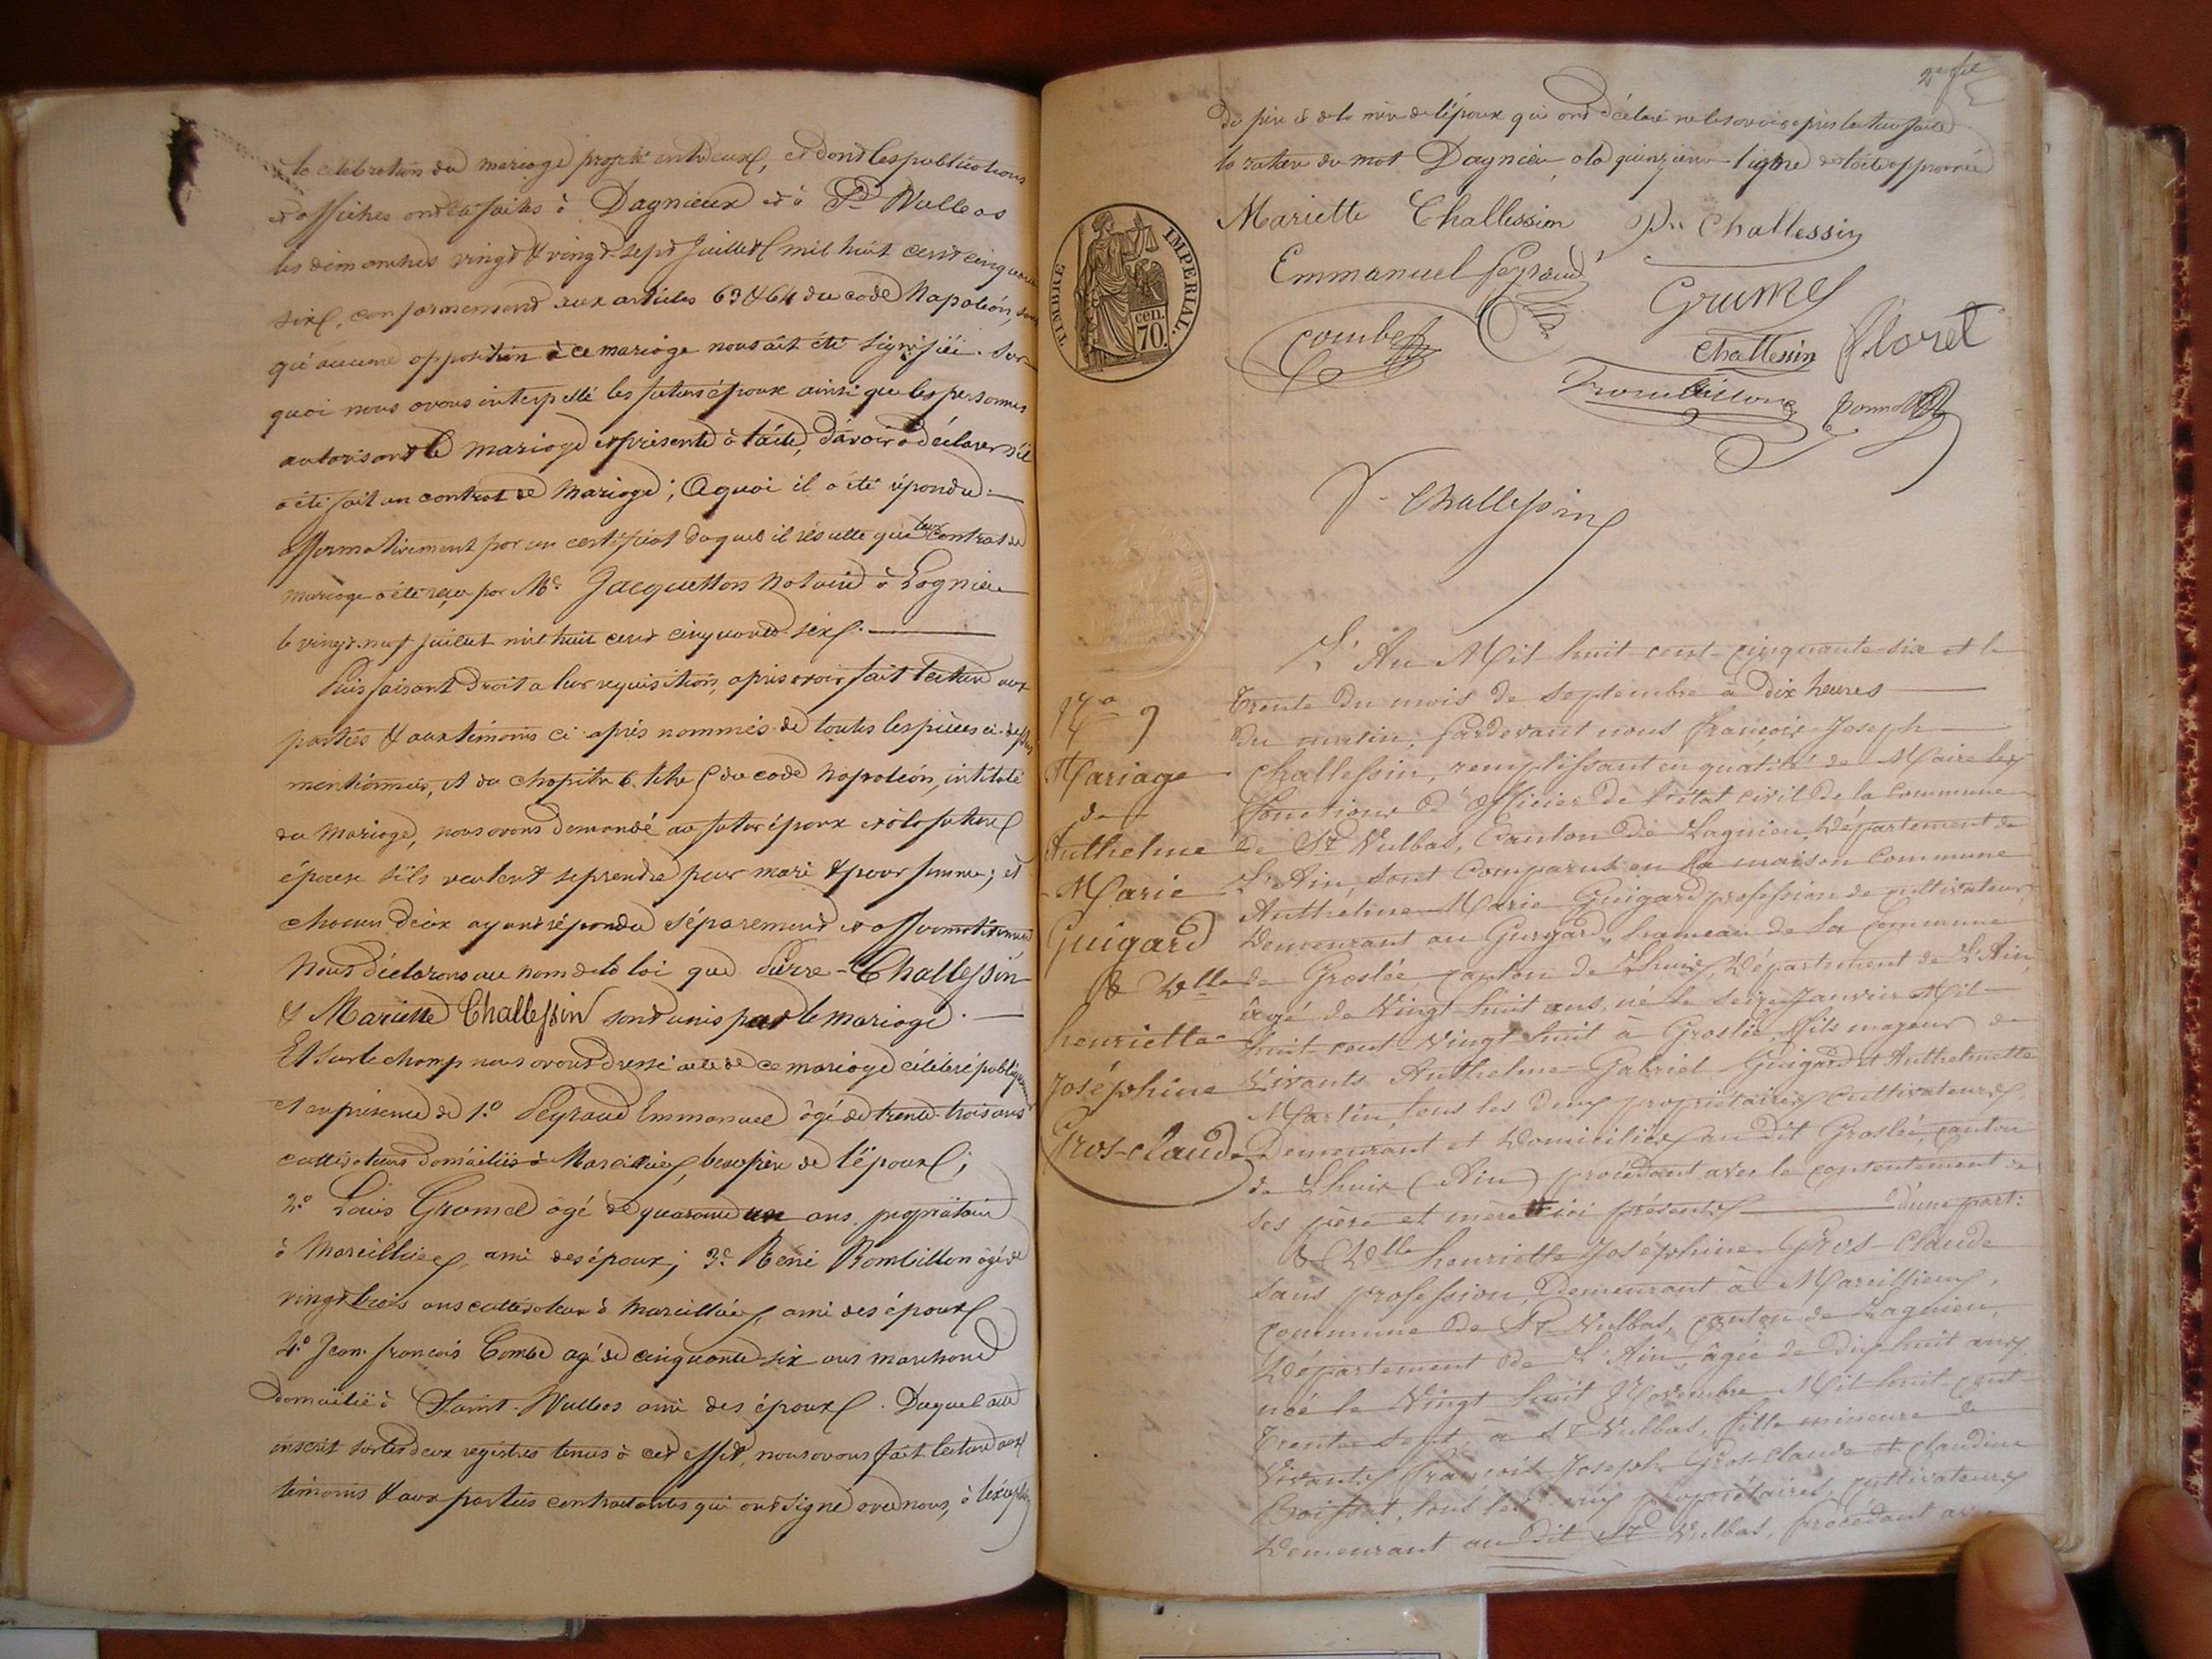 la célébration du mariage projeté entr'eux, et dont les publications
et affiches ont été faites à Dagnieux et à St Vulbas
les dimanches vingt & vingt-sept Juillet mil huit cent cinquante
six, conformément aux articles 63 & 64 du code Napoléon, sans
qu'aucune opposition à ce mariage nous ait été signifiée. Sur
quoi nous avons interpellé les futurs époux ainsi que les personnes
autorisant le mariage et présente à l'acte, d'avoir à déclarer s'il
a été fait un contrat de Mariage; A quoi il a été répondu
affirmativement par un certificat duquel il résulte que leur contrat de
mariage a été reçu par Me Jacquetton Notaire à Lagnieu
le vingt-neuf juillet mil huit cent cinquante-six.
Puis faisant droit à leur réquisition, après avoir fait lecture aux
parties & aux témoins ci-après nommés de toutes les pièces ci-dessus
mentionnées, et du chapitre 6 titre 5 du code Napoléon, intitulé
du Mariage, nous avons demandé au futur époux et à la future
épouse s'ils veulent se prendre pour mari & pour femme; et
chacun d'eux ayant répondu séparément et affirmativement
Nous déclarons au nom de la loi que Pierre Challessin
& Mariette Challessin sont unis par le mariage.
Et sur le champ nous avons dressé acte de ce mariage célébré publiquement
et en présence de 1º Peyraud Emmanuel âgé de trente-trois ans
cultivateur domicilié à Marcillieux, beau père de l'époux;
2º Louis Grumel âgé de quarante un ans propriétaire
à Marcillieux, ami des époux; 3º Réné Rombillon âgé de
vingt trois ans cultivateur à Marcillieux, ami des époux
4º Jean François Combe âgé de cinquante-six ans marchand
domicilié à Saint-Vulbas ami des époux. Duquel acte
inscrit sur les deux registres tenus à cet effet, nous avons fait lecture aux
témoins & aux parties contractantes qui ont signé avec nous, à l'exception
du père et de la mère de l'époux qui ont déclaré ne le savoir après lecture faite
la rature du mot Dagnieu, à la quinzième ligne de l'acte approuvée
Mariette Challessin Pre Challessin
Emmanuel Peyraud
Grumel
Combe
Challessin floret
TIMBRE IMPERIAL.
70 cen.
Challessin
L'An Mil huit cent cinquante-six et le
trente du mois de septembre à Dix heures
du matin, Pardevant nous françois Joseph
Challessin, remplissant en qualité de Maire les
fonctions d'Officier de l'état civil de la Commune
de St Vulbas, Canton de Lagnieu, Département de
L'Ain, sont comparus en la maison Commune
Anthelme Marie Guigard profession de cultivateur,
Demeurant au Guigard, hameau de la Commune
de Groslée, canton de Lhuis, Département de L'Ain,
âgé de Vingt huit ans, né le seize Janvier Mil
huit cent Vingt huit à Groslée, fils majeur de
Vivants Anthelme Gabriel Guigard et Anthelmette
Martin, tous les deux propriétaires cultivateurs,
Demeurant et Domiciliés au dit Groslée, canton
de Lhuis (Ain) procédant avec le consentement de
ses père et mère ici présents d'une part:
& Dlle henriette Joséphine Gros-Claude
sans profession, Demeurant à Marcillieux,
Commune de St Vulbas, canton de Lagnieu,
Département de L'Ain, âgée de Dix huit ans,
née le Vingt huit Novembre Mil huit cent
trente sept, à St Vulbas, fille mineure de
Vivants François Joseph Gros-Claude et Claudine
tous les deux propriétaires, cultivateurs
Demeurant au dit St Vulbas, procédant avec
Mariage
de
Anthelme
Marie
Guigard
& Dlle
henriette
Joséphine
Gros-claude